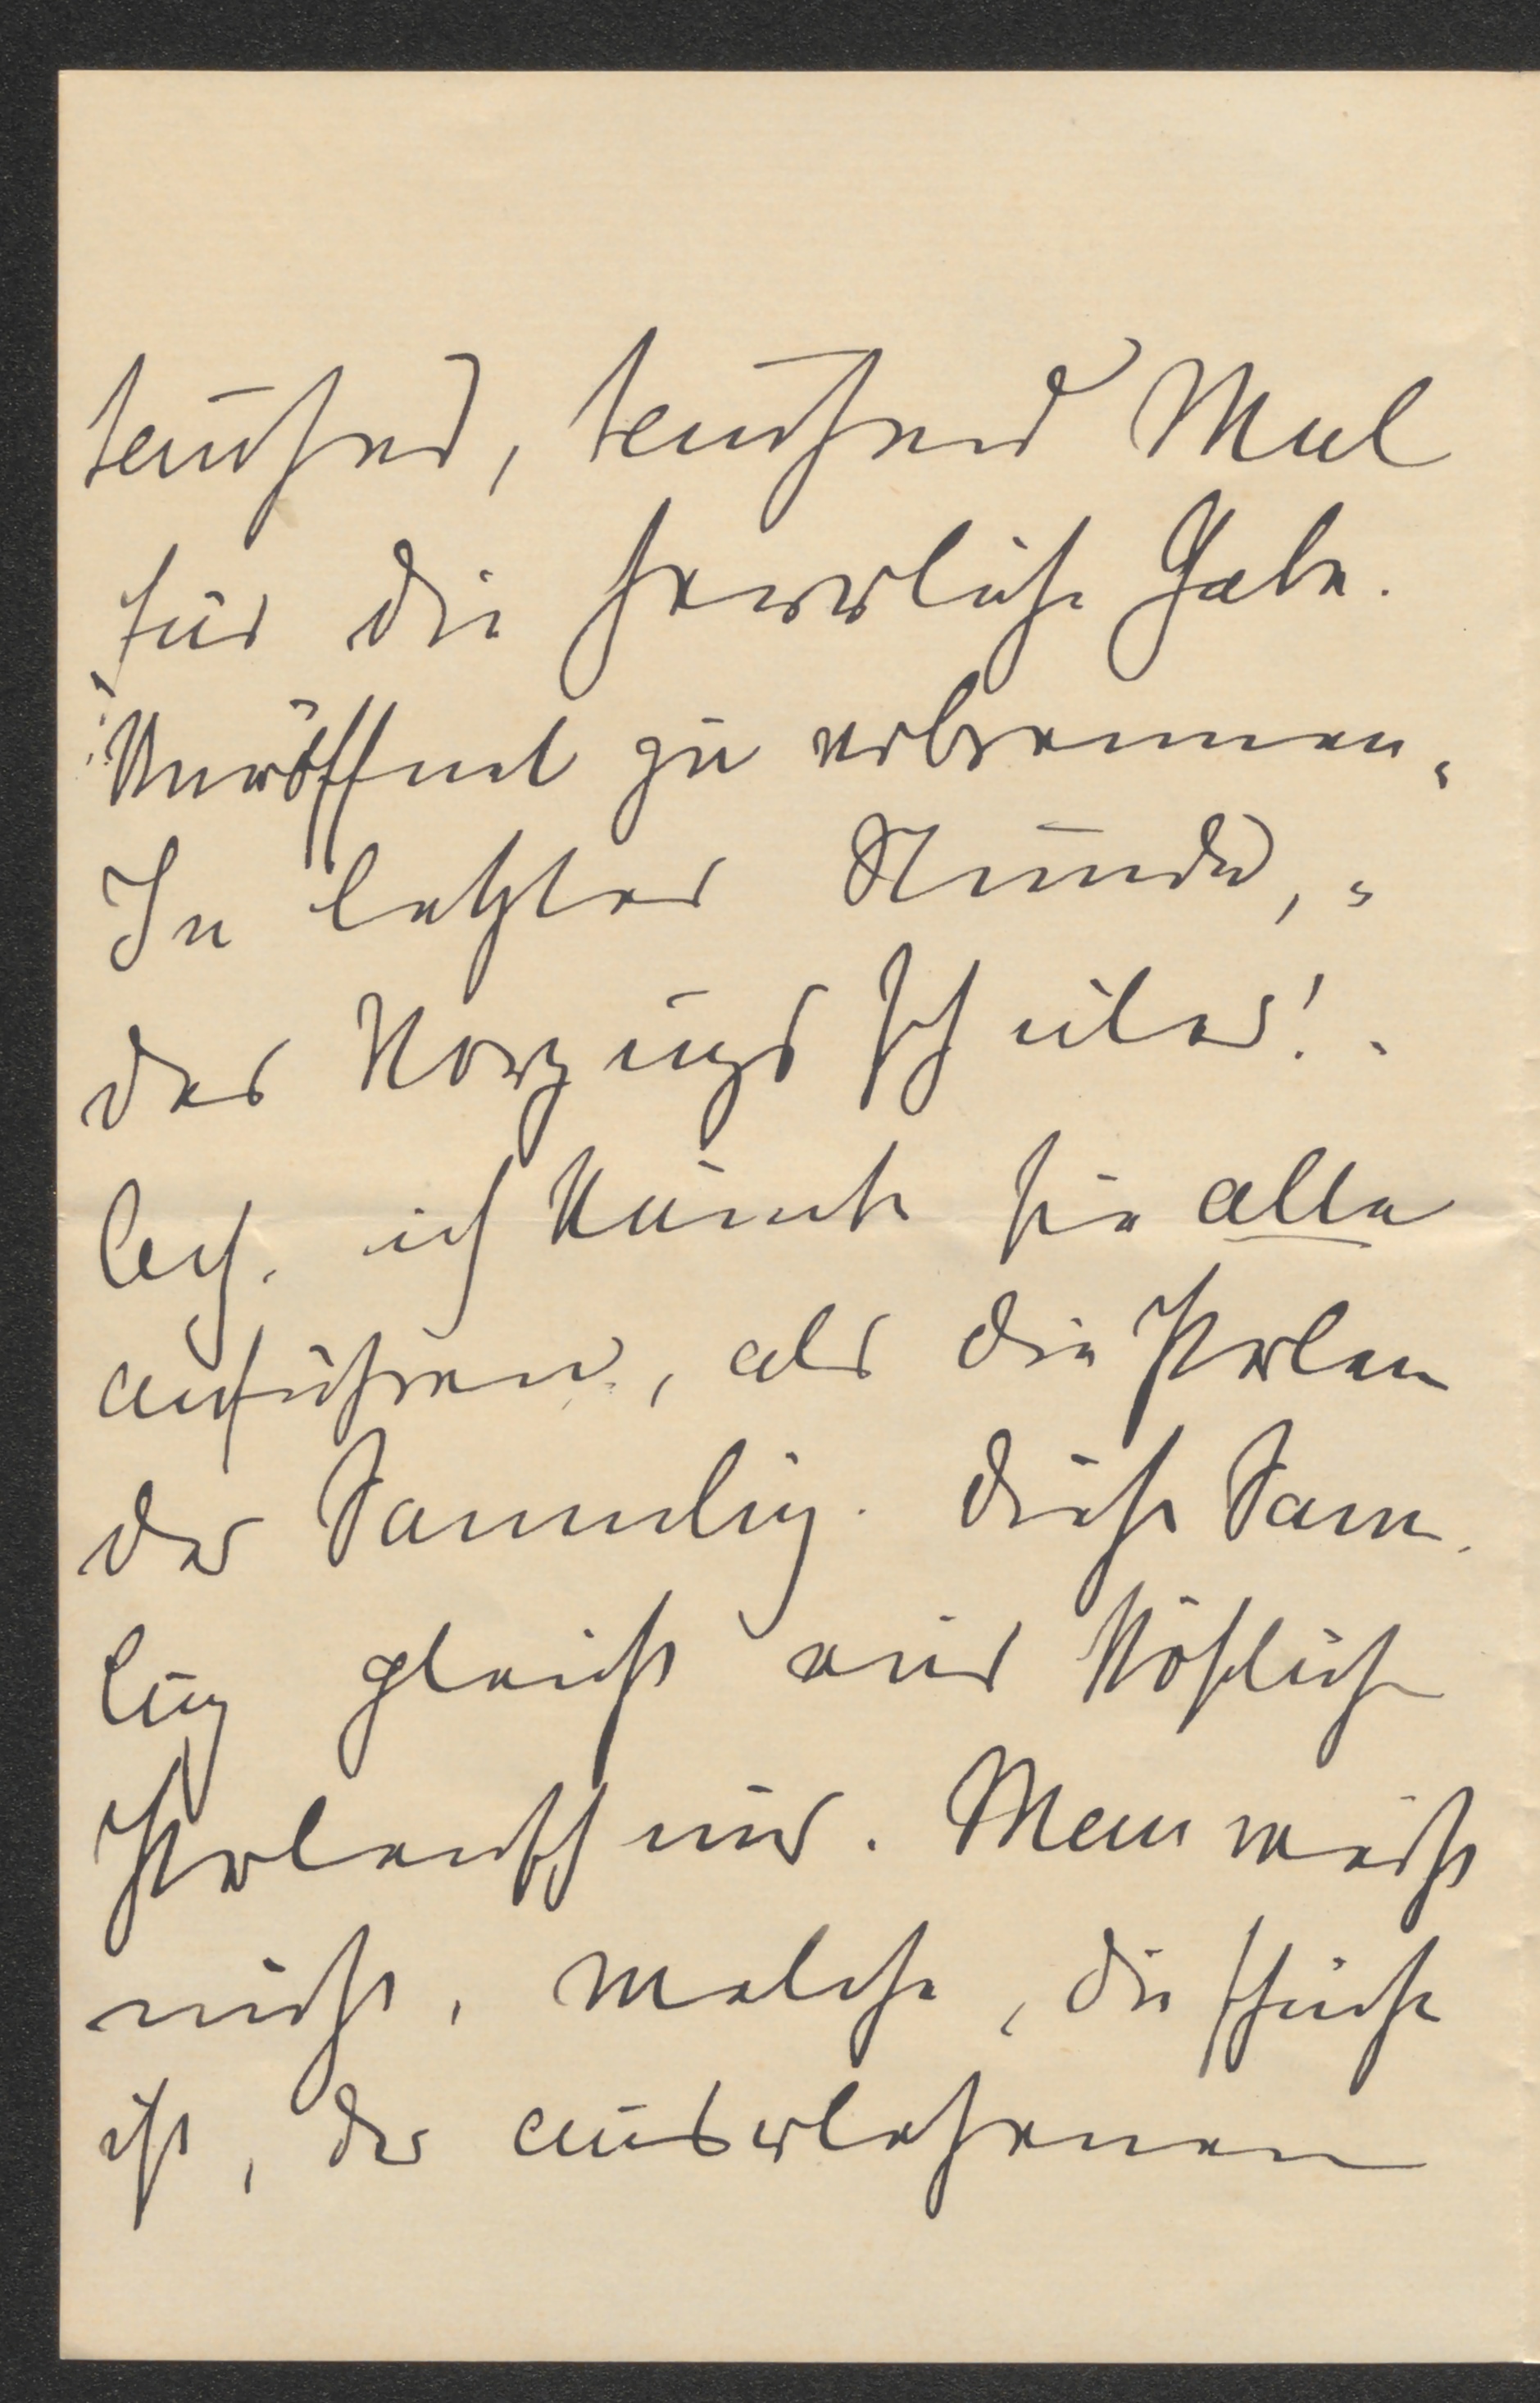 tausend, tausend Mal
für die herrliche Gabe.
"Uneröffnet zu verbrennen"
In letzter Stunde, "
der Vorzugsschüler!"
Ach, ich könnte sie alle
anführen, als die Perlen
der Sammlung. Diese Sam¬
lung gleicht einer köstlichen
Perlenschnur. Man weiß
nicht, welche, die schönste
ist, der auserlesenen